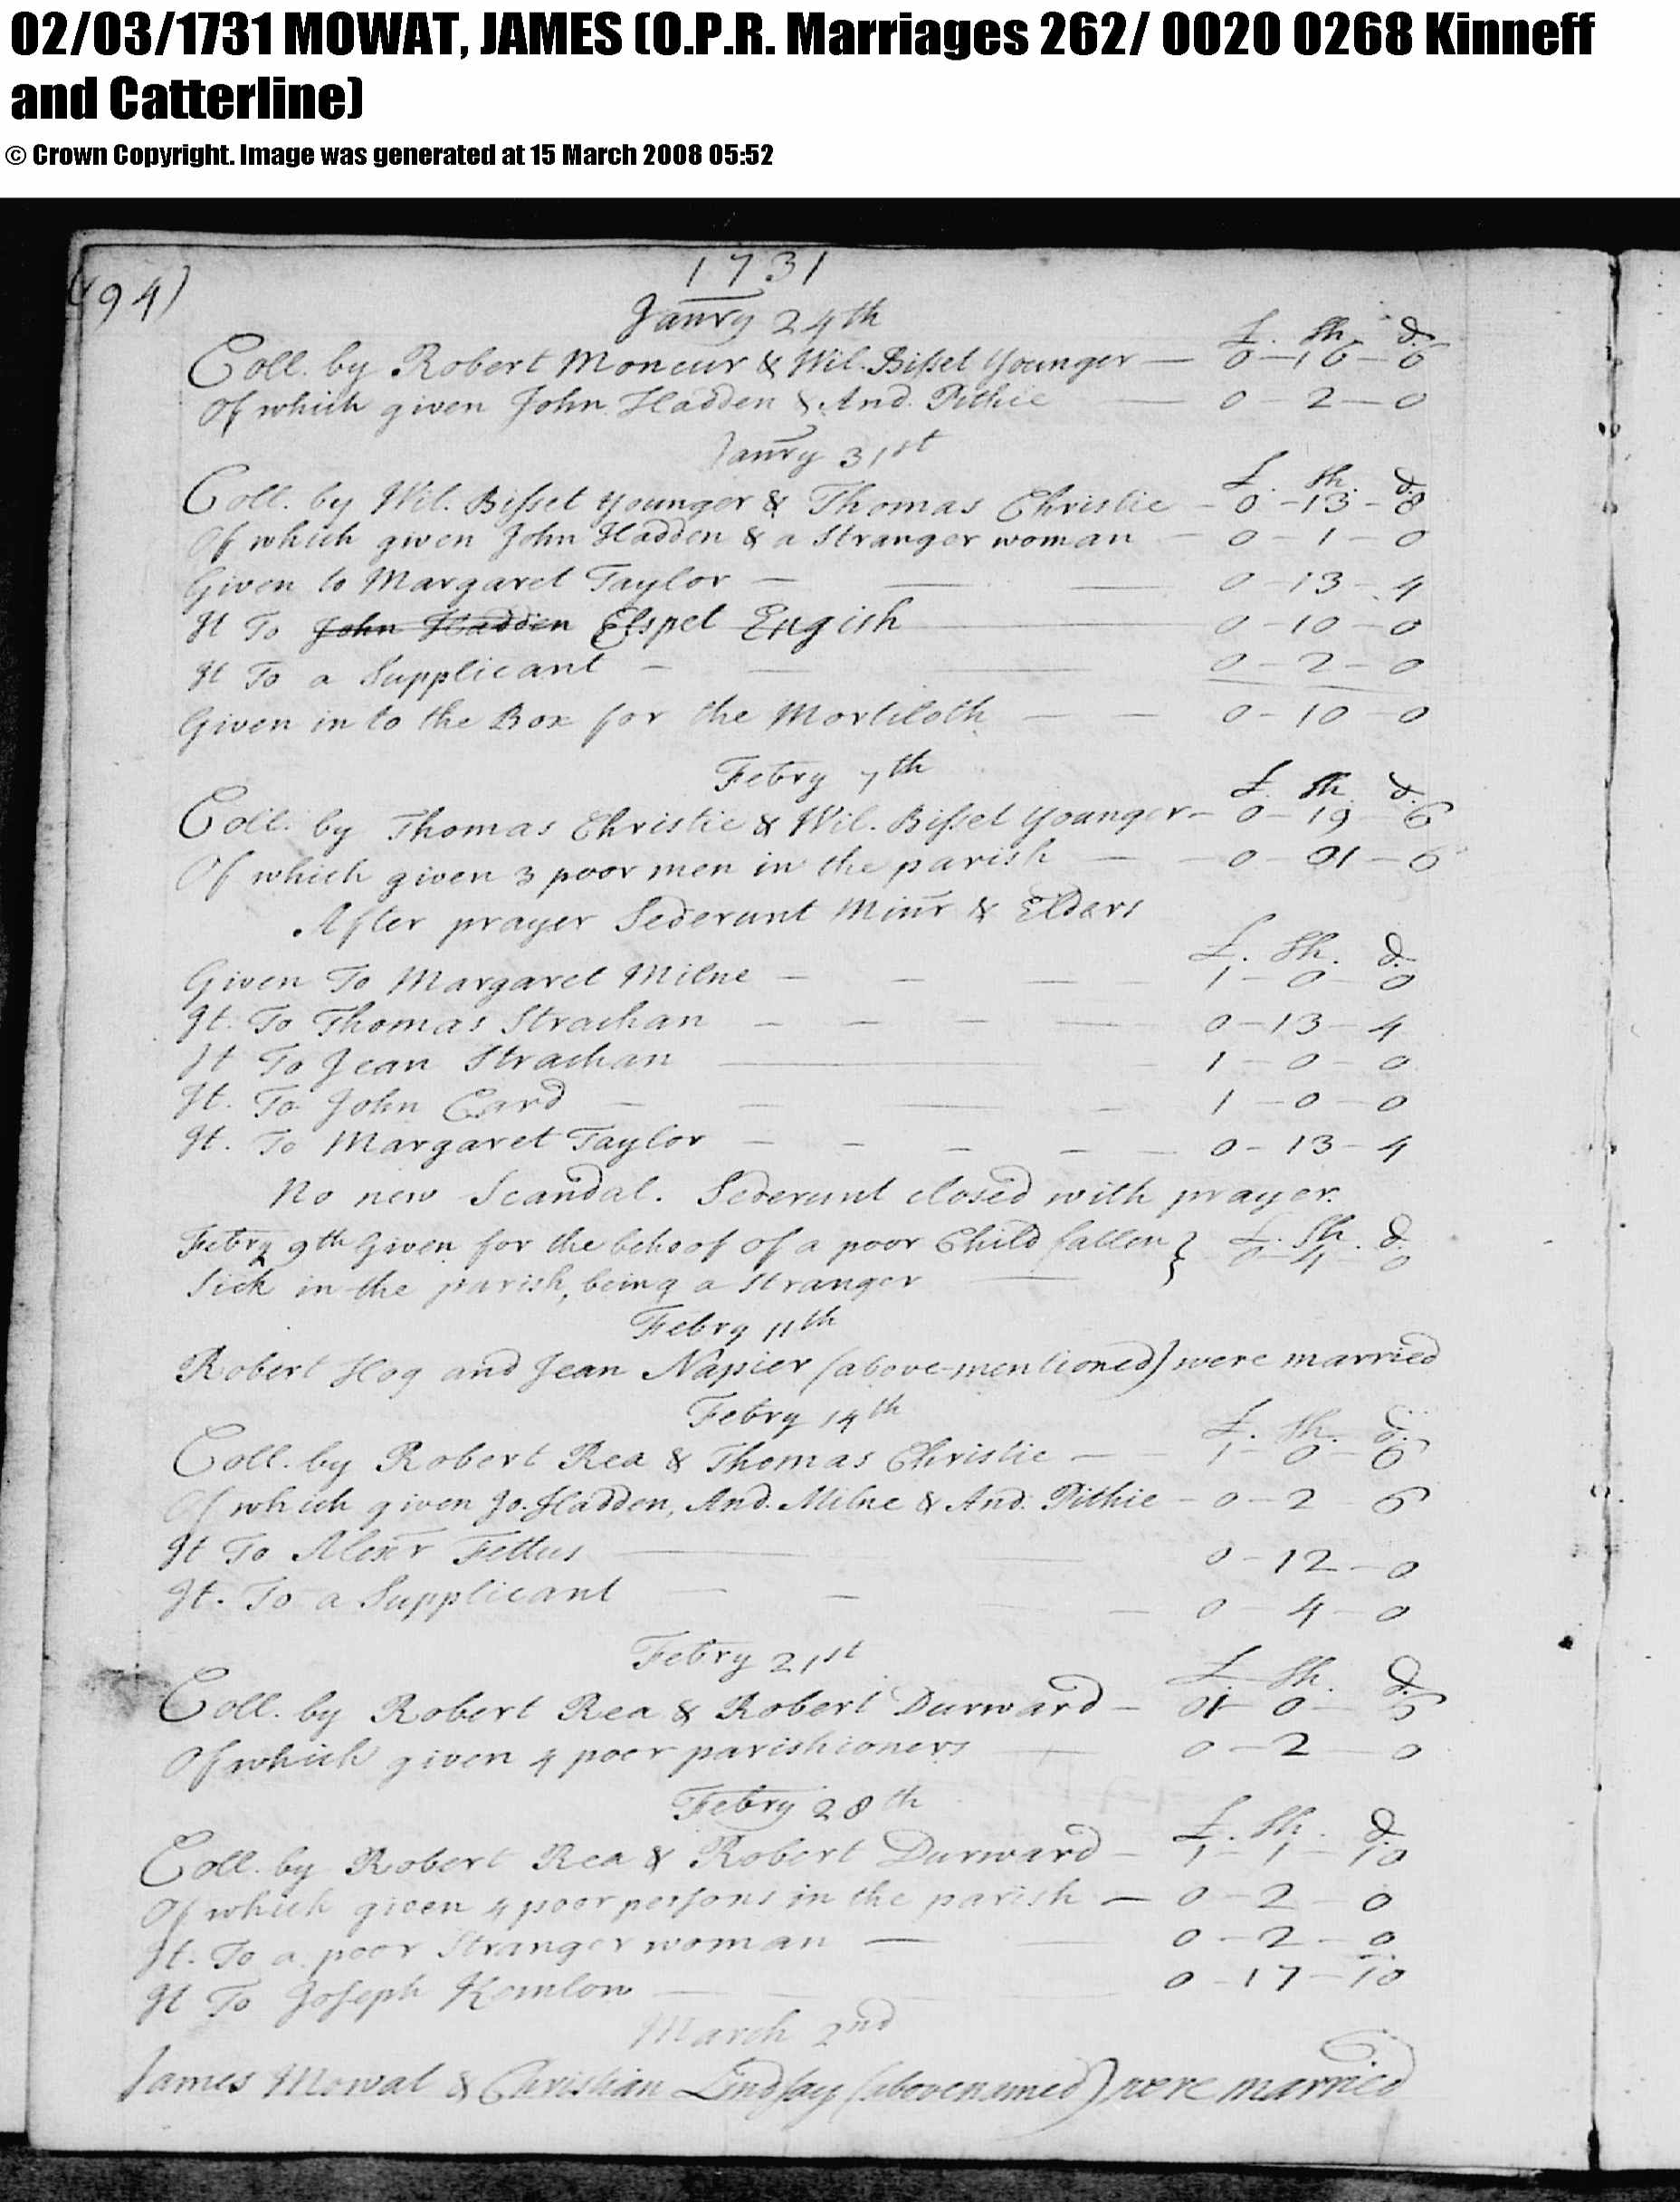 02/03/1731 MOWAT, JAMES (O.P.R. Marriages 262/ 0020 0268 Kinneff
and Catterline)
© Crown Copyright. Image was generated at 15 March 2008 05:52
(94)
1731
Janry 24th
£. Sh. d.
Coll. by Robert Moncur & Wil. Bisset Younger — 0 – 16 – 6
Of which given John Hadden & And. Pithie — 0 2 – 0
Janry 31st
£. Sh. d.
Coll. by Wil. Bisset younger & Thomas Christie – 0 – 13 – 8
Of which given John Hadden & a Stranger woman – 0 – 1 – 0
Given to Margaret Taylor — 0 – 13 – 4
It To John Hadden Elspet Engish — 0 – 10 – 0
It To a Supplicant — 0 – 2 – 0
Given in to the Box for the Mortcloth — 0 – 10 – 0
Febry 7th
£. Sh. d.
Coll. by Thomas Christie & Wil. Bisset Younger – 0 – 19 – 6
Of which given 3 poor men in the parish — 0 – 01 – 6
After prayer Sederunt Minr & Elders
£. Sh. d.
Given To Margaret Milne — 1 – 0 – 0
It. To Thomas Strachan — 0 – 13 – 4
It To Jean Strachan — 1 – 0 – 0
It. To John Card — 1 – 0 – 0
It. To Margaret Taylor — 0 – 13 – 4
No new Scandal. Sederunt closed with prayer.
Febry 9th Given for the behoof of a poor Child fallen } £. Sh. d.
Sick in the parish, being a stranger — } 0 – 4 – 0
Febry 11th
Robert Hog and Jean Napier (above-mentioned) were married
Febry 14th
£. Sh. d.
Coll. by Robert Rea & Thomas Christie — 1 – 0 – 6
Of which given Jo. Hadden, And. Milne & And. Pithie – 0 – 2 6
It To Alexr Fettus — 0 – 12 – 0
It. To a Supplicant — 0 – 4 – 0
Febry 21st
£. Sh. d.
Coll. by Robert Rea & Robert Durward – 01 – 0 –
Of which given 4 poor parishioners — 0 – 2 – 0
Febry 28th
£. Sh. d.
Coll. by Robert Rea & Robert Durward – 1 – 1 – 10
Of which given 4 poor persons in the parish — 0 – 2 – 0
It. To a poor Stranger woman — 0 – 2 – 0
It To Joseph Kemlow — 0 – 17 – 10
March 2nd
James Mowat & Christian Lindsay (abovenamed) were married